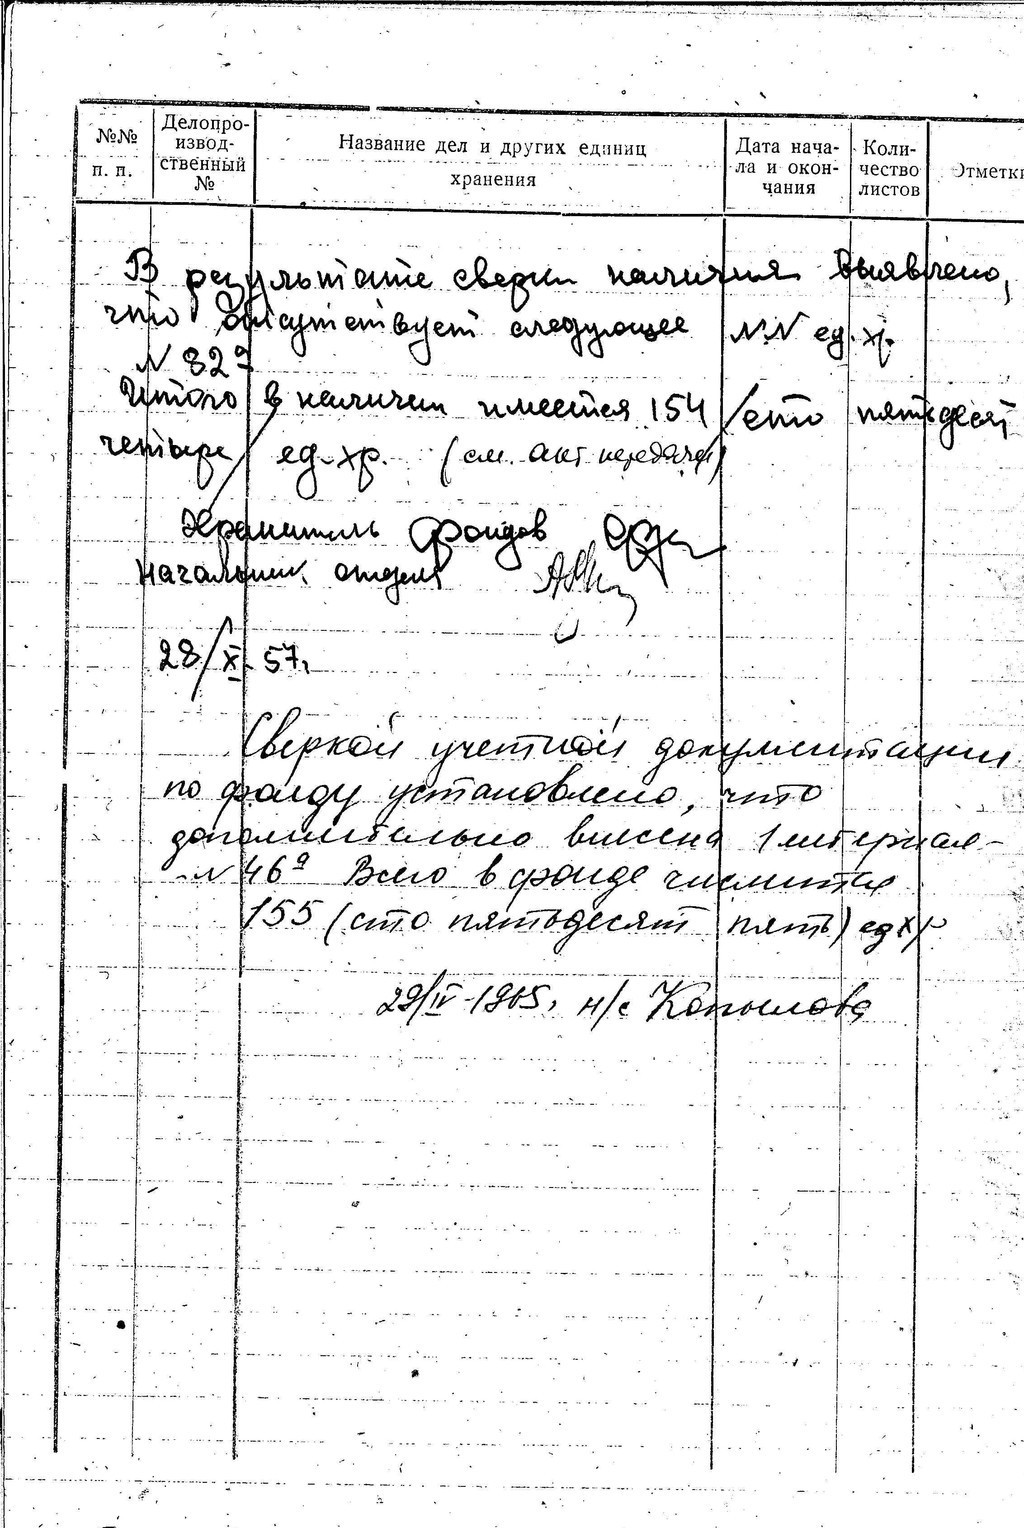 №№ п. п.
Делопро-
извод-
ственный
№
Название дел и других единиц
хранения
Дата нача-
ла и окон-
чания
Коли-
чество
листов
Отметки
В результате сверки наличия выявлено,
что отсутствует следующее N.N ед. хр.
N 82а
Итого в наличии имеется 154 /сто пятьдесят
четыре/ ед. хр. (см. акт передачи)
Хранитель фондов
Начальник отдела
28/X 57.
Сверкой учетной документации
по фонду установлено, что
дополнительно внесена 1 литерная -
- N 46а Всего в фонде числится
155 (сто пятьдесят пять) ед хр
29/IV-1965. н/с Копылова